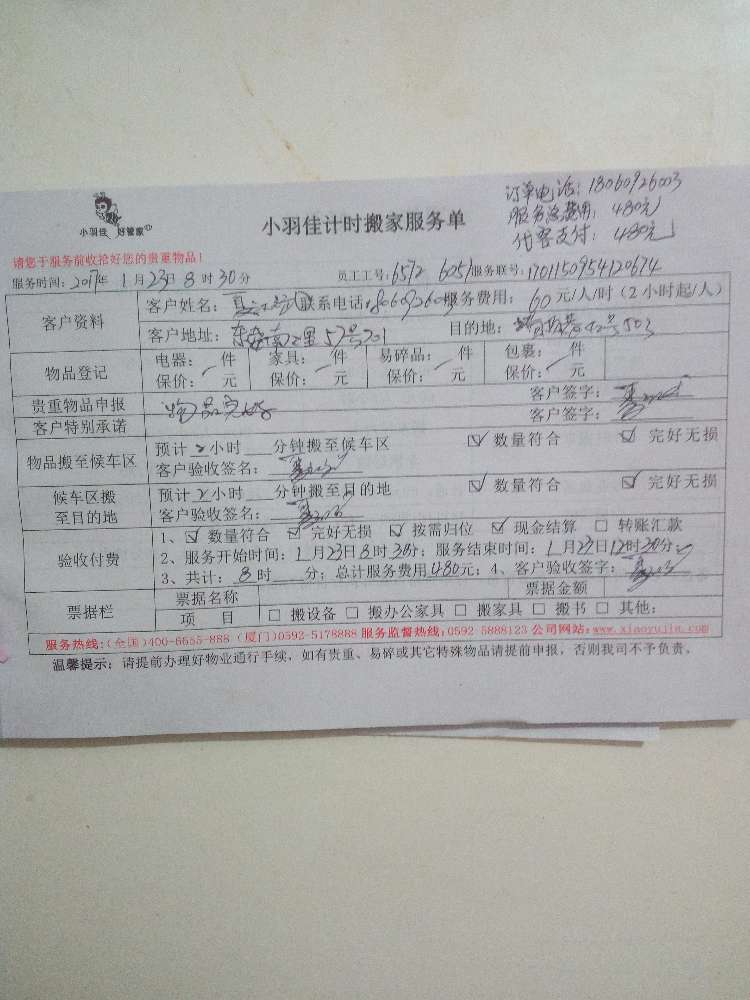 订单电话：18060926003
服务总费用：480元
代客支付：480元
小羽佳 好管家
小羽佳计时搬家服务单
请您于服务前收拾好您的贵重物品！
服务时间：2017年1月23日8时30分 员工工号：6572 6051 服务联号：1701150954120674
客户资料
客户姓名： 联系电话：18060926003 服务费用：60元/人/时（2小时起/人）
客户地址： 57号201 目的地： 503
物品登记
电器： 件 家具： 件 易碎品： 件 包裹： 件
保价： 元 保价： 元 保价： 元 保价： 元
贵重物品申报 物品完好 客户签字：
客户特别承诺 客户签字：
物品搬至候车区
预计2小时 分钟搬至候车区 ☑ 数量符合 ☑ 完好无损
客户验收签名：
候车区搬至目的地
预计2小时 分钟搬至目的地 ☑ 数量符合 ☑ 完好无损
客户验收签名：
验收付费
1、☑ 数量符合 ☑ 完好无损 ☑ 按需归位 ☑ 现金结算 □ 转账汇款
2、服务开始时间：1月23日8时30分；服务结束时间：1月23日12时30分；
3、共计：8时 分；总计服务费用480元；4、客户验收签字：
票据栏
票据名称 票据金额
项 目 □ 搬设备 □ 搬办公家具 □ 搬家具 □ 搬书 □ 其他：
服务热线：(全国)400-6655-888 (厦门)0592-5178888 服务监督热线：0592-5888123 公司网站：www.xiaoyujia.com
温馨提示：请提前办理好物业通行手续，如有贵重、易碎或其它特殊物品请提前申报，否则我司不予负责。